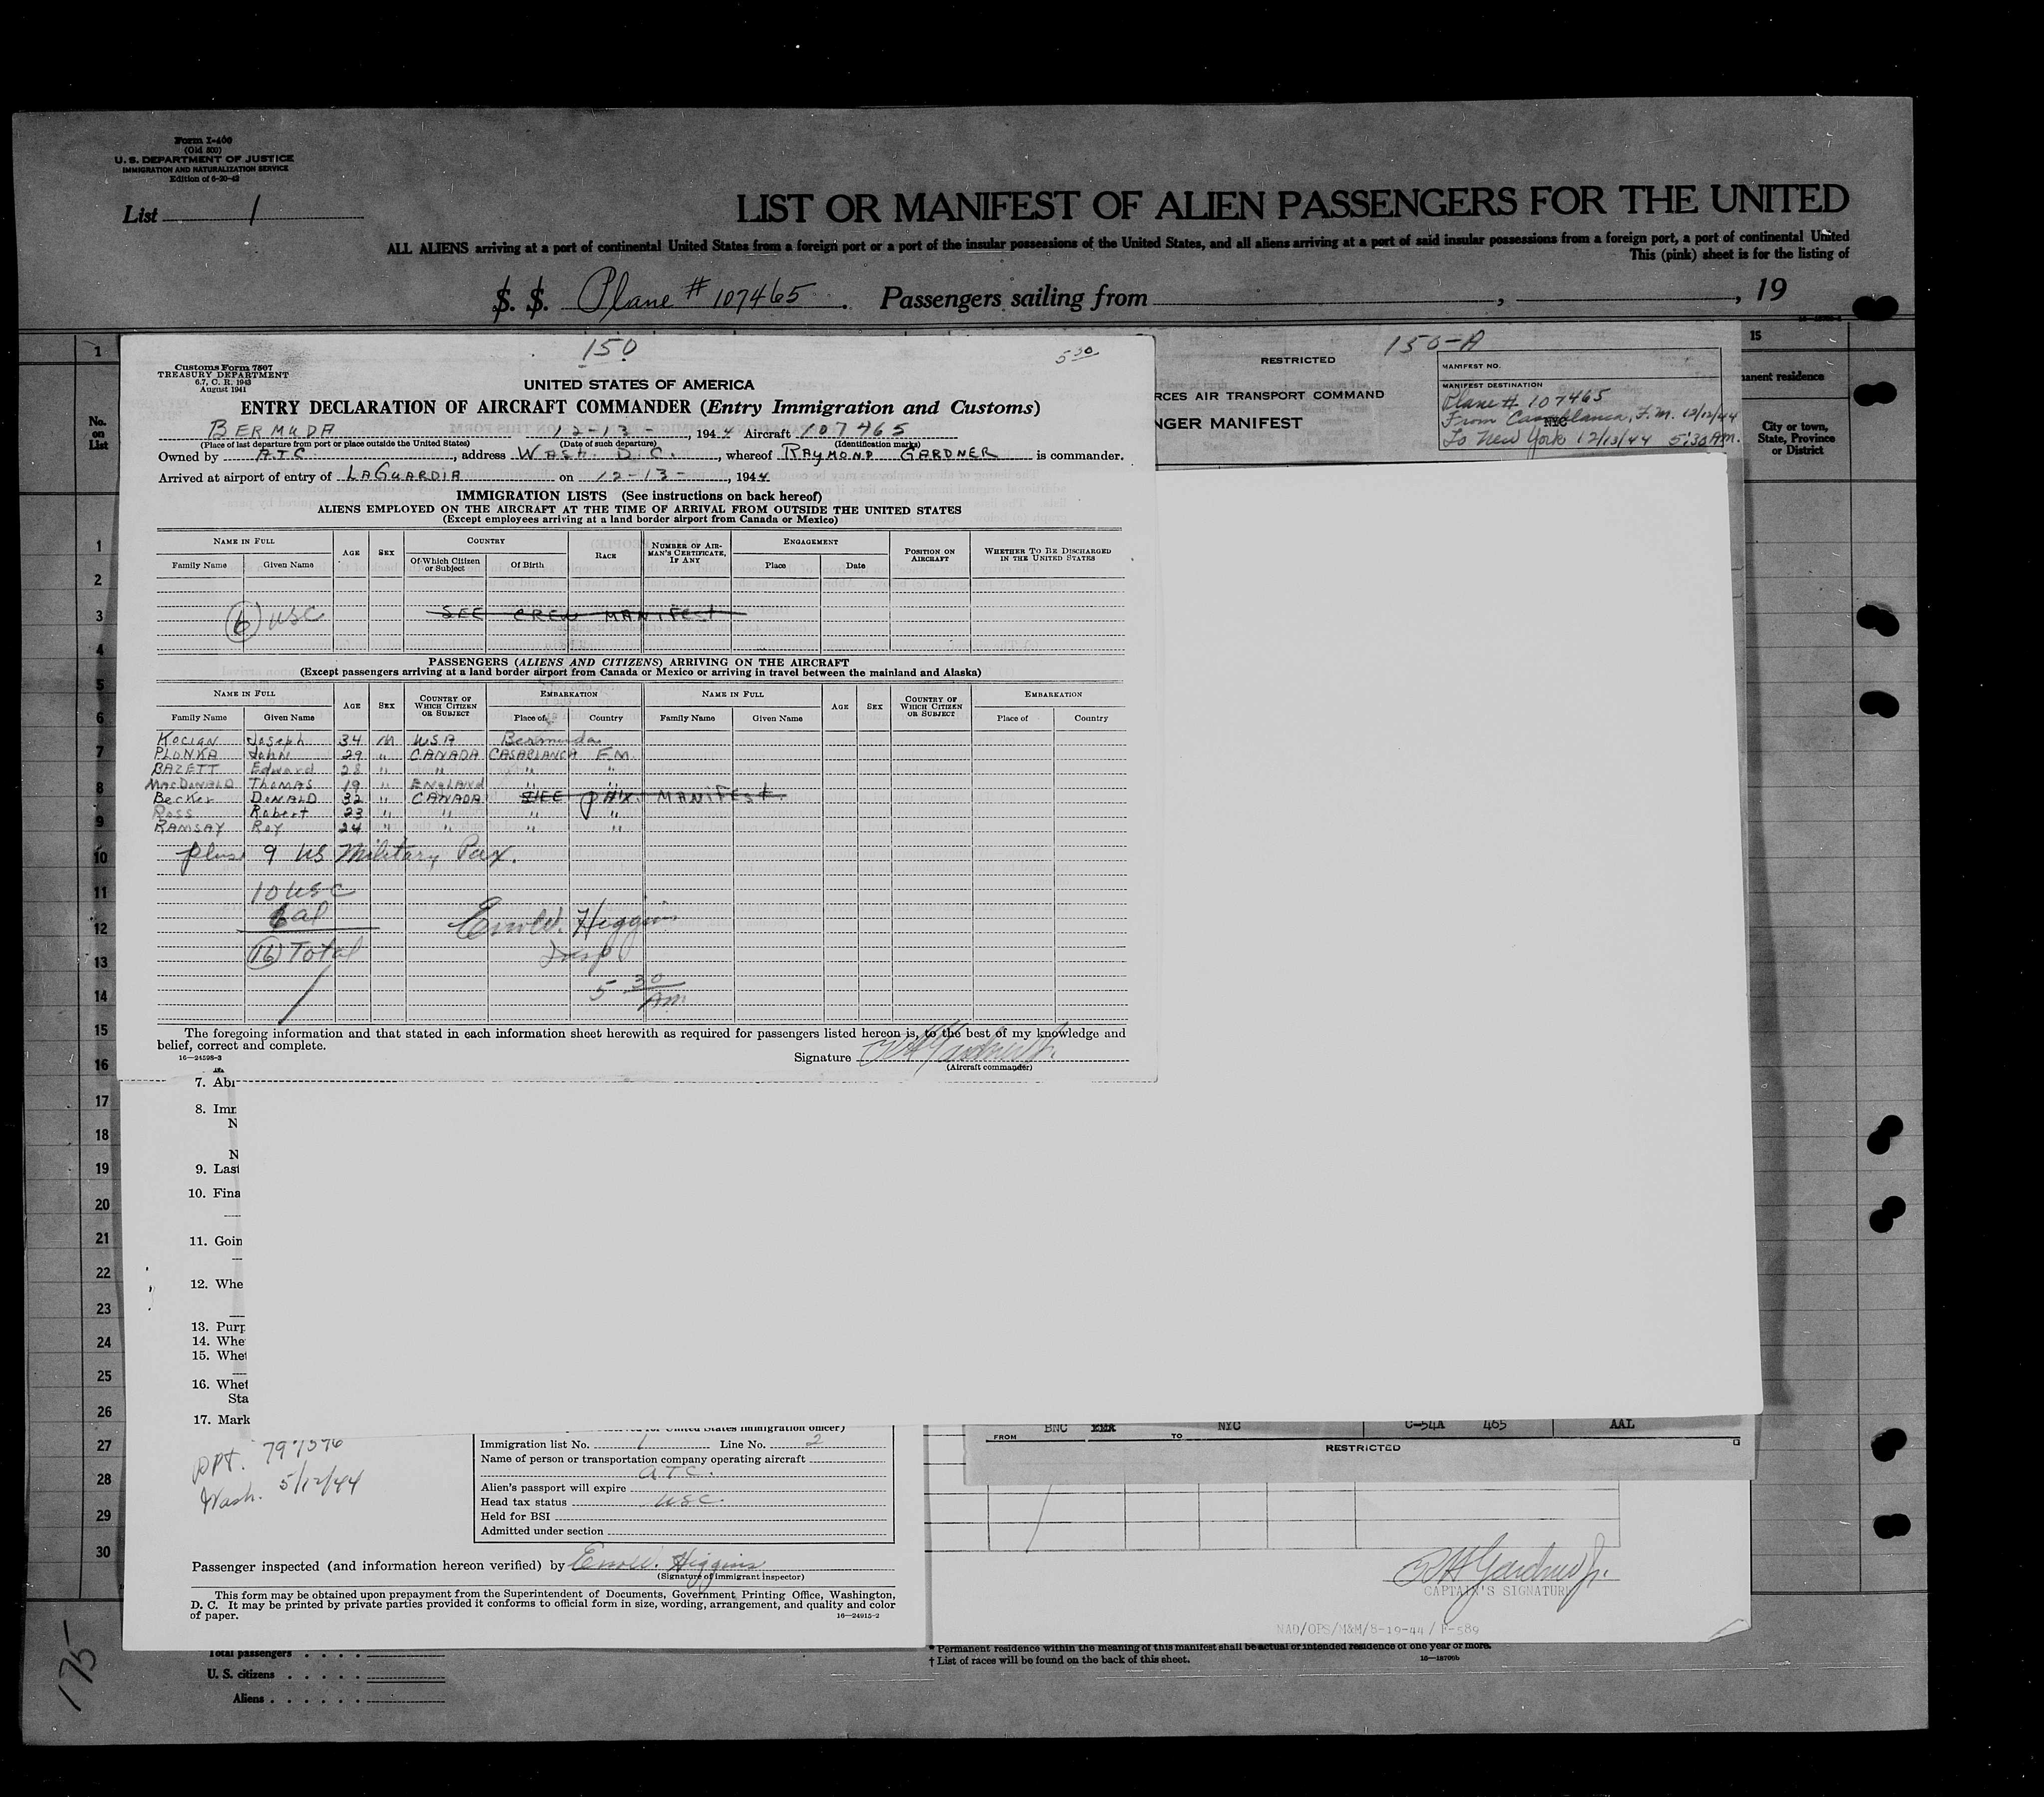 Form I-400
(Old 500)
U. S. DEPARTMENT OF JUSTICE
IMMIGRATION AND NATURALIZATION SERVICE
Edition of 6-20-42
List 1
LIST OR MANIFEST OF ALIEN PASSENGERS FOR THE UNITED
ALL ALIENS arriving at a port of continental United States from a foreign port or a port of the insular possessions of the United States, and all aliens arriving at a port of said insular possessions from a foreign port, a port of continental United
This (pink) sheet is for the listing of
S. S. Plane # 107465. Passengers sailing from , , 19
150
5 30
Customs Form 7507
TREASURY DEPARTMENT
6.7, C. R. 1943
August 1941
UNITED STATES OF AMERICA
ENTRY DECLARATION OF AIRCRAFT COMMANDER (Entry Immigration and Customs)
BERMUDA 12-13-, 1944 Aircraft 107465
(Place of last departure from port or place outside the United States) (Date of such departure) (Identification marks)
Owned by A.T.C., address WASH. D.C., whereof RAYMOND GARDNER is commander.
Arrived at airport of entry of LAGUARDIA on 12-13-, 1944.
IMMIGRATION LISTS (See instructions on back hereof)
ALIENS EMPLOYED ON THE AIRCRAFT AT THE TIME OF ARRIVAL FROM OUTSIDE THE UNITED STATES
(Except employees arriving at a land border airport from Canada or Mexico)
NAME IN FULL AGE SEX COUNTRY RACE NUMBER OF AIRMAN'S CERTIFICATE, IF ANY ENGAGEMENT POSITION ON AIRCRAFT WHETHER TO BE DISCHARGED IN THE UNITED STATES
Family Name Given Name Of Which Citizen or Subject Of Birth Place Date
(6) USC SEE CREW MANIFEST
PASSENGERS (ALIENS AND CITIZENS) ARRIVING ON THE AIRCRAFT
(Except passengers arriving at a land border airport from Canada or Mexico or arriving in travel between the mainland and Alaska)
NAME IN FULL AGE SEX COUNTRY OF WHICH CITIZEN OR SUBJECT EMBARKATION NAME IN FULL AGE SEX COUNTRY OF WHICH CITIZEN OR SUBJECT EMBARKATION
Family Name Given Name Place of Country Family Name Given Name Place of Country
KOCIAN Joseph 34 M USA Bermuda
PLONKA John 29 " CANADA CASABLANCA F.M.
BAZETT Edward 28 " " " "
MacDONALD THOMAS 19 " ENGLAND " "
Becker DONALD 32 " CANADA SEE PAX. MANIFEST.
Ross Robert 23 " " " "
RAMSAY ROY 24 " " " "
plus 9 US Military Pax.
10 USC
6 al
(16) Total
Errol W. Higgins
Insp
5 30 Am.
The foregoing information and that stated in each information sheet herewith as required for passengers listed hereon is, to the best of my knowledge and
belief, correct and complete.
16—24598-3
Signature R H Gardner Jr.
(Aircraft commander)
150-A
RESTRICTED
RCES AIR TRANSPORT COMMAND
NGER MANIFEST
MANIFEST NO.
MANIFEST DESTINATION
Plane # 107465
From Casablanca, F.M. 12/12/44
NYC
To New York 12/13/44 5:30 AM.
15
anent residence
City or town, State, Province or District
No. on List
1
1
2
3
4
5
6
7
8
9
10
11
12
13
14
15
16
17
18
19
20
21
22
23
24
25
26
27
28
29
30
7. Abr
8. Imr
N
N
9. Last
10. Fina
11. Goin
12. Whe
13. Purp
14. Whe
15. Whet
16. Whet
Sta
17. Mark
ppt. 797376
Wash. 5/12/44
United States Immigration officer)
Immigration list No. 1 Line No. 2
Name of person or transportation company operating aircraft
A.T.C.
Alien's passport will expire
Head tax status USC.
Held for BSI
Admitted under section
Passenger inspected (and information hereon verified) by Errol W. Higgins
(Signature of immigrant inspector)
This form may be obtained upon prepayment from the Superintendent of Documents, Government Printing Office, Washington,
D. C. It may be printed by private parties provided it conforms to official form in size, wording, arrangement, and quality and color
of paper.
16—24915-2
BNC NYC C-54A 465 AAL
FROM TO
RESTRICTED
R H Gardner Jr.
CAPTAIN'S SIGNATURE
NAD/OPS/M&M/8-19-44/F-589
* Permanent residence within the meaning of this manifest shall be actual or intended residence of one year or more.
† List of races will be found on the back of this sheet.
16—18706b
Total passengers
U. S. citizens
Aliens
175